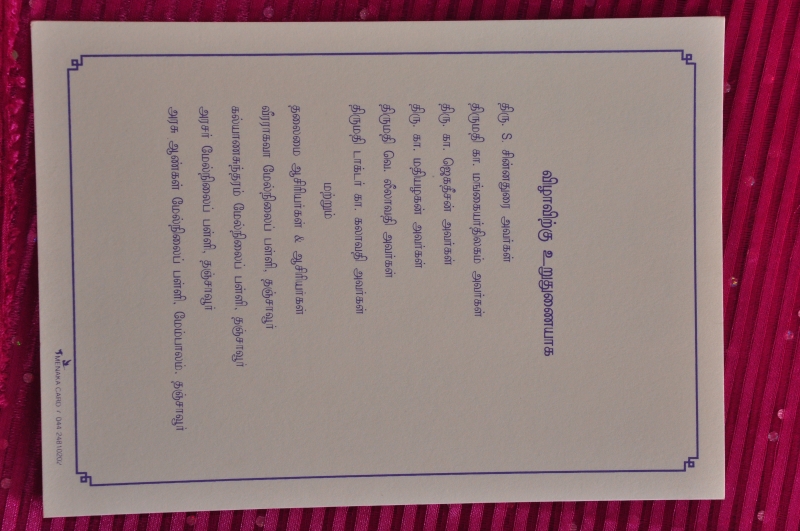 விழாவிற்கு உறுதுணையாக
திரு. S. சின்னதுரை அவர்கள்
திருமதி கா. மங்கையர்திலகம் அவர்கள்
திரு. கா. ஜெகதீசன் அவர்கள்
திரு. கா. மதியழகன் அவர்கள்
திருமதி வெ. லீலாவதி அவர்கள்
திருமதி டாக்டர் கா. கலாவதி அவர்கள்
மற்றும்
தலைமை ஆசிரியர்கள் & ஆசிரியர்கள்
வீரராகவா மேல்நிலைப் பள்ளி, தஞ்சாவூர்
கல்யாணசுந்தரம் மேல்நிலைப் பள்ளி, தஞ்சாவூர்
அரசர் மேல்நிலைப் பள்ளி, தஞ்சாவூர்
அரசு ஆண்கள் மேல்நிலைப் பள்ளி, மேம்பாலம், தஞ்சாவூர்
MENAKA CARD / 044 24810202